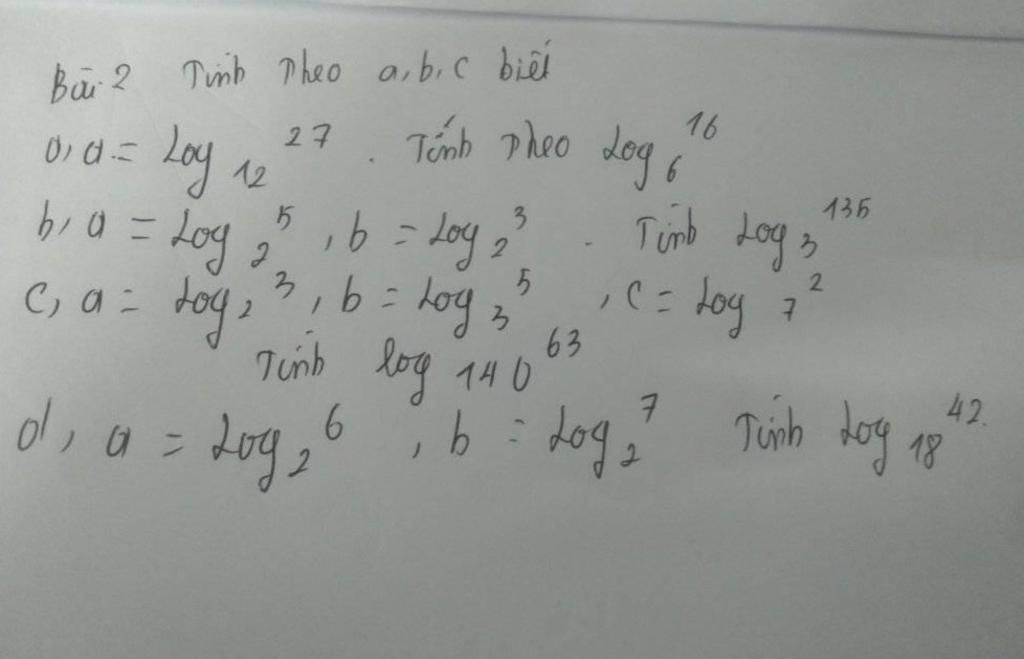 Bài 2 Tính theo a, b, c biết
a, a = Log₁₂ 27 . Tính theo Log₆ 16
b, a = Log₂ 5 , b = Log₂ 3 . Tính Log₃ 135
c, a = Log₂ 3 , b = Log₃ 5 , c = Log₇ 2
Tính log₁₄₀ 63
d, a = Log₂ 6 , b = Log₂ 7 Tính Log₁₈ 42.